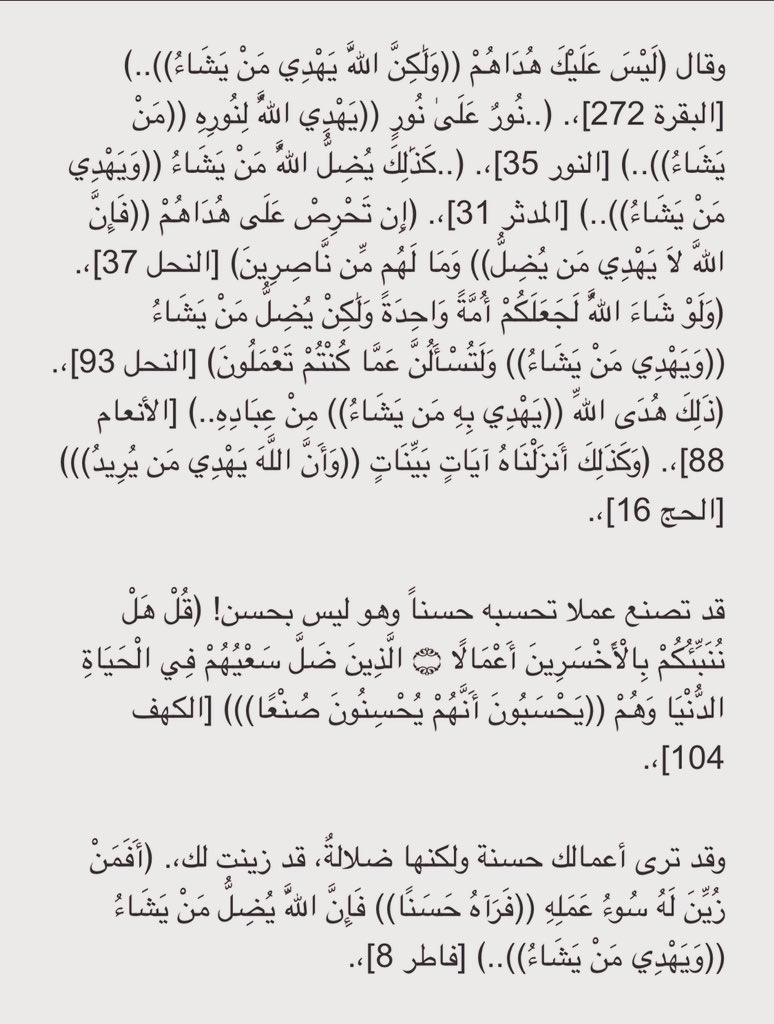 وقال (لَيْسَ عَلَيْكَ هُدَاهُمْ ((وَلَٰكِنَّ اللَّهَ يَهْدِي مَنْ يَشَاءُ))..)
[البقرة 272]،. (..نُورٌ عَلَىٰ نُورٍ ((يَهْدِي اللَّهُ لِنُورِهِ ((مَنْ
يَشَاءُ))..) [النور 35]،. (..كَذَٰلِكَ يُضِلُّ اللَّهُ مَنْ يَشَاءُ ((وَيَهْدِي
مَنْ يَشَاءُ))..) [المدثر 31]،. (إِن تَحْرِصْ عَلَى هُدَاهُمْ ((فَإِنَّ
اللَّهَ لاَ يَهْدِي مَن يُضِلُّ)) وَمَا لَهُم مِّن نَّاصِرِينَ) [النحل 37]،.
(وَلَوْ شَاءَ اللَّهُ لَجَعَلَكُمْ أُمَّةً وَاحِدَةً وَلَٰكِنْ يُضِلُّ مَنْ يَشَاءُ
((وَيَهْدِي مَنْ يَشَاءُ)) وَلَتُسْأَلُنَّ عَمَّا كُنْتُمْ تَعْمَلُونَ) [النحل 93]،.
(ذَلِكَ هُدَى اللَّهِ ((يَهْدِي بِهِ مَن يَشَاءُ)) مِنْ عِبَادِهِ..) [الأنعام
88]،. (وَكَذَلِكَ أَنزَلْنَاهُ آيَاتٍ بَيِّنَاتٍ ((وَأَنَّ اللَّهَ يَهْدِي مَن يُرِيدُ)))
[الحج 16]،.
قد تصنع عملا تحسبه حسناً وهو ليس بحسن! (قُلْ هَلْ
نُنَبِّئُكُمْ بِالْأَخْسَرِينَ أَعْمَالًا ۝ الَّذِينَ ضَلَّ سَعْيُهُمْ فِي الْحَيَاةِ
الدُّنْيَا وَهُمْ ((يَحْسَبُونَ أَنَّهُمْ يُحْسِنُونَ صُنْعًا))) [الكهف
104]،.
وقد ترى أعمالك حسنة ولكنها ضلالةٌ، قد زينت لك،. (أَفَمَنْ
زُيِّنَ لَهُ سُوءُ عَمَلِهِ ((فَرَآهُ حَسَنًا)) فَإِنَّ اللَّهَ يُضِلُّ مَنْ يَشَاءُ
((وَيَهْدِي مَنْ يَشَاءُ))..) [فاطر 8]،.